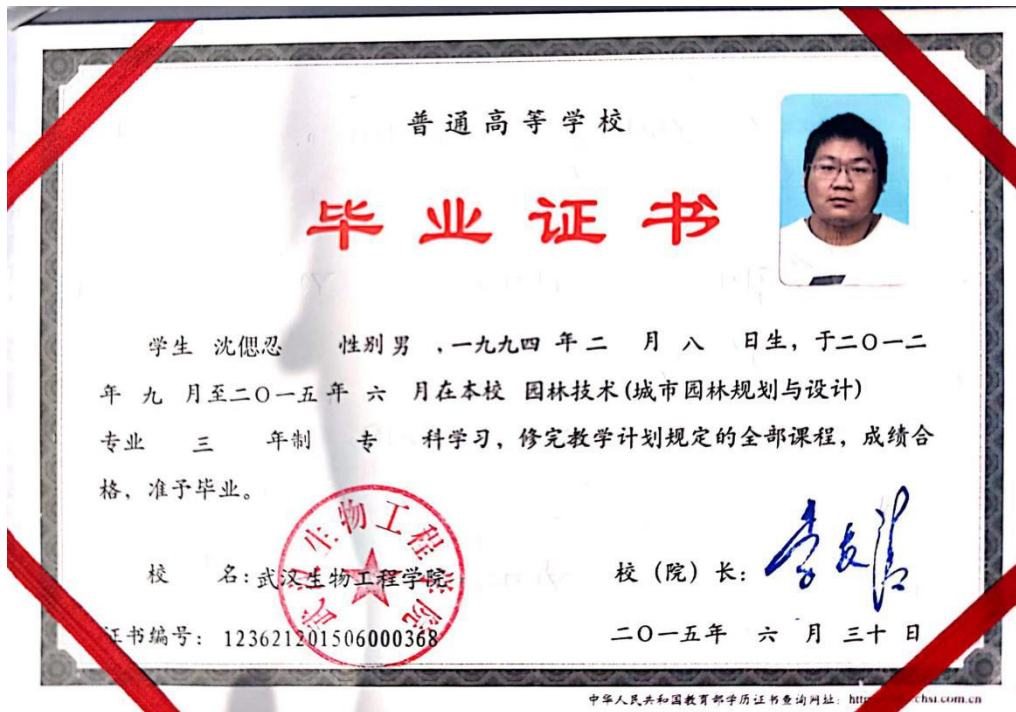 普通高等学校
毕业证书
学生 沈偲忍 性别男 ,一九九四 年 二 月 八 日生，于二〇一二
年 九 月至二〇一五年 六 月在本校 园林技术(城市园林规划与设计)
专业 三 年制 专 科学习，修完教学计划规定的全部课程，成绩合
格，准予毕业。
武汉生物工程学院
校 名：武汉生物工程学院
校（院）长：
证书编号： 123621201506000368
二〇一五年 六 月 三十 日
中华人民共和国教育部学历证书查询网址：
chsi.com.cn